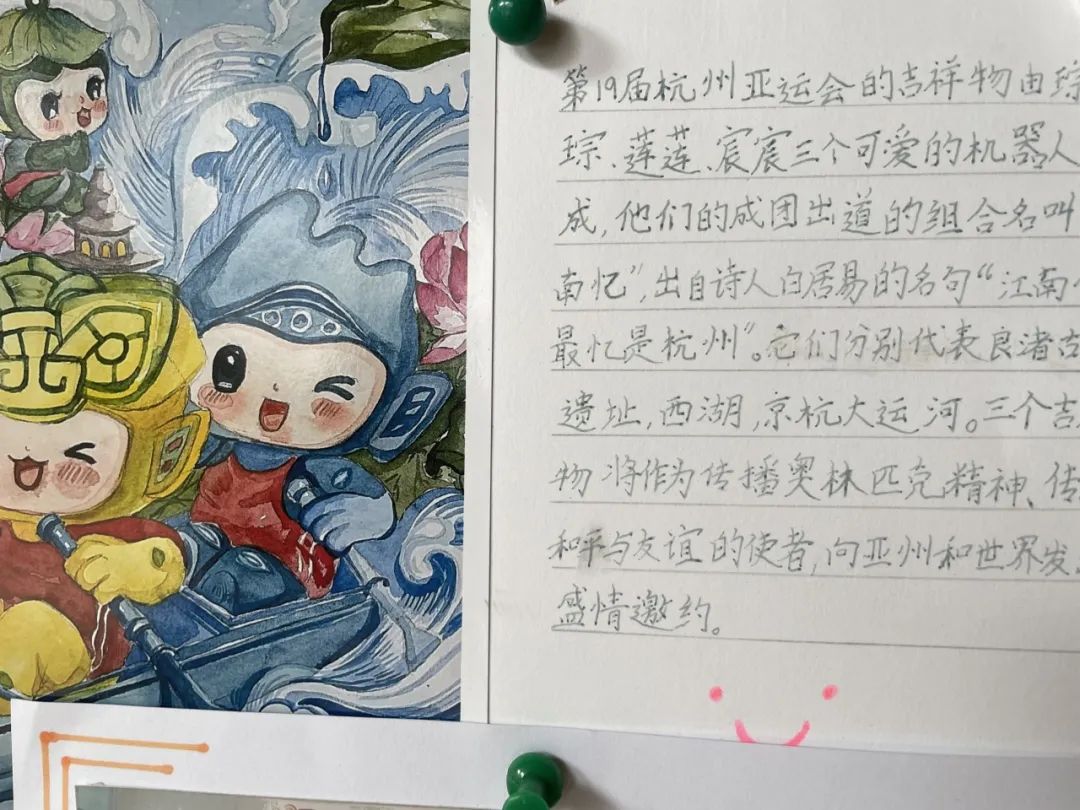 第19届杭州亚运会的吉祥物由琮
琮、莲莲、宸宸三个可爱的机器人
成,他们的成团出道的组合名叫
南忆”,出自诗人白居易的名句“江南
最忆是杭州”。它们分别代表良渚古
遗址,西湖,京杭大运河。三个吉
物将作为传播奥林匹克精神、传
和平与友谊的使者,向亚州和世界发
盛情邀约。